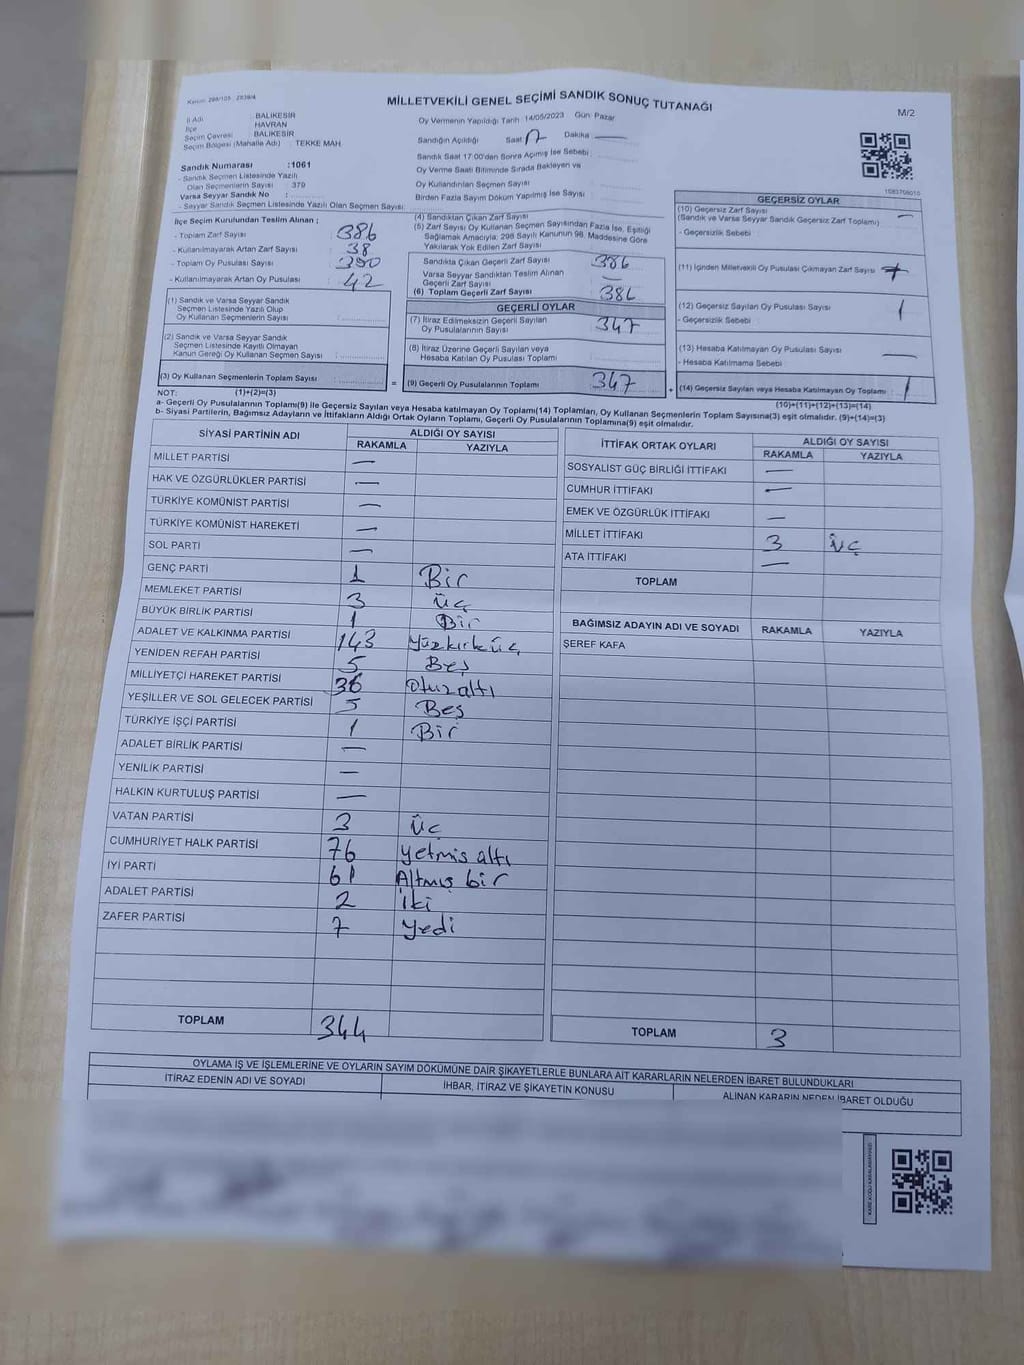 Kanun: 298/105 2839/4
MİLLETVEKİLİ GENEL SEÇİMİ SANDIK SONUÇ TUTANAĞI
M/2
İl Adı : BALIKESİR
İlçe : HAVRAN
Seçim Çevresi : BALIKESİR
Seçim Bölgesi (Mahalle Adı) : TEKKE MAH.
Sandık Numarası :1061
- Sandık Seçmen Listesinde Yazılı
Olan Seçmenlerin Sayısı : 379
Varsa Seyyar Sandık No :
- Seyyar Sandık Seçmen Listesinde Yazılı Olan Seçmen Sayısı:
Oy Vermenin Yapıldığı Tarih :14/05/2023 Gün: Pazar
Sandığın Açıldığı Saat: Dakika: —
Sandık Saat 17:00'dan Sonra Açılmış İse Sebebi:
Oy Verme Saati Bitiminde Sırada Bekleyen ve
Oy Kullandırılan Seçmen Sayısı :
Birden Fazla Sayım Döküm Yapılmış İse Sayısı :
İlçe Seçim Kurulundan Teslim Alınan ;
- Toplam Zarf Sayısı : 386
- Kullanılmayarak Artan Zarf Sayısı : 38
- Toplam Oy Pusulası Sayısı : 390
- Kullanılmayarak Artan Oy Pusulası : 42
(1) Sandık ve Varsa Seyyar Sandık
Seçmen Listesinde Yazılı Olup
Oy Kullanan Seçmenlerin Sayısı :
(2) Sandık ve Varsa Seyyar Sandık
Seçmen Listesinde Kayıtlı Olmayan
Kanun Gereği Oy Kullanan Seçmen Sayısı :
(3) Oy Kullanan Seçmenlerin Toplam Sayısı :
(4) Sandıktan Çıkan Zarf Sayısı :
(5) Zarf Sayısı Oy Kullanan Seçmen Sayısından Fazla İse, Eşitliği
Sağlamak Amacıyla; 298 Sayılı Kanunun 98. Maddesine Göre
Yakılarak Yok Edilen Zarf Sayısı
Sandıkta Çıkan Geçerli Zarf Sayısı 386
Varsa Seyyar Sandıktan Teslim Alınan
Geçerli Zarf Sayısı —
(6) Toplam Geçerli Zarf Sayısı : 386
GEÇERLİ OYLAR
(7) İtiraz Edilmeksizin Geçerli Sayılan
Oy Pusulalarının Sayısı : 347
(8) İtiraz Üzerine Geçerli Sayılan veya
Hesaba Katılan Oy Pusulası Toplamı
= (9) Geçerli Oy Pusulalarının Toplamı 347 +
1083708010
GEÇERSİZ OYLAR
(10) Geçersiz Zarf Sayısı —
(Sandık ve Varsa Seyyar Sandık Geçersiz Zarf Toplamı)
- Geçersizlik Sebebi :
(11) İçinden Milletvekili Oy Pusulası Çıkmayan Zarf Sayısı
(12) Geçersiz Sayılan Oy Pusulası Sayısı 1
- Geçersizlik Sebebi
(13) Hesaba Katılmayan Oy Pusulası Sayısı —
- Hesaba Katılmama Sebebi
(14) Geçersiz Sayılan veya Hesaba Katılmayan Oy Toplamı 1
NOT: (1)+(2)=(3)
(10)+(11)+(12)+(13)=(14)
a- Geçerli Oy Pusulasının Toplamı(9) ile Geçersiz Sayılan veya Hesaba katılmayan Oy Toplamı(14) Toplamları, Oy Kullanan Seçmenlerin Toplam Sayısına(3) eşit olmalıdır. (9)+(14)=(3)
b- Siyasi Partilerin, Bağımsız Adayların ve İttifakların Aldığı Ortak Oyların Toplamı, Geçerli Oy Pusulalarının Toplamına(9) eşit olmalıdır.
SİYASİ PARTİNİN ADI ALDIĞI OY SAYISI
RAKAMLA YAZIYLA
MİLLET PARTİSİ —
HAK VE ÖZGÜRLÜKLER PARTİSİ —
TÜRKİYE KOMÜNİST PARTİSİ —
TÜRKİYE KOMÜNİST HAREKETİ —
SOL PARTİ —
GENÇ PARTİ 1 Bir
MEMLEKET PARTİSİ 3 üç
BÜYÜK BİRLİK PARTİSİ 1 Bir
ADALET VE KALKINMA PARTİSİ 143 Yüzkırküç
YENİDEN REFAH PARTİSİ 5 Beş
MİLLİYETÇİ HAREKET PARTİSİ 36 Otuzaltı
YEŞİLLER VE SOL GELECEK PARTİSİ 5 Beş
TÜRKİYE İŞÇİ PARTİSİ 1 Bir
ADALET BİRLİK PARTİSİ —
YENİLİK PARTİSİ —
HALKIN KURTULUŞ PARTİSİ —
VATAN PARTİSİ 3 üç
CUMHURİYET HALK PARTİSİ 76 yetmis altı
İYİ PARTİ 61 Altmış bir
ADALET PARTİSİ 2 İki
ZAFER PARTİSİ 7 Yedi
TOPLAM 344
İTTİFAK ORTAK OYLARI ALDIĞI OY SAYISI
RAKAMLA YAZIYLA
SOSYALIST GÜÇ BİRLİĞİ İTTİFAKI —
CUMHUR İTTİFAKI —
EMEK VE ÖZGÜRLÜK İTTİFAKI —
MİLLET İTTİFAKI 3 üç
ATA İTTİFAKI —
TOPLAM
BAĞIMSIZ ADAYIN ADI VE SOYADI RAKAMLA YAZIYLA
ŞEREF KAFA
TOPLAM 3
OYLAMA İŞ VE İŞLEMLERİNE VE OYLARIN SAYIM DÖKÜMÜNE DAİR ŞİKAYETLERLE BUNLARA AİT KARARLARIN NELERDEN İBARET BULUNDUKLARI
İTİRAZ EDENİN ADI VE SOYADI İHBAR, İTİRAZ VE ŞİKAYETİN KONUSU ALINAN KARARIN NEDEN İBARET OLDUĞU